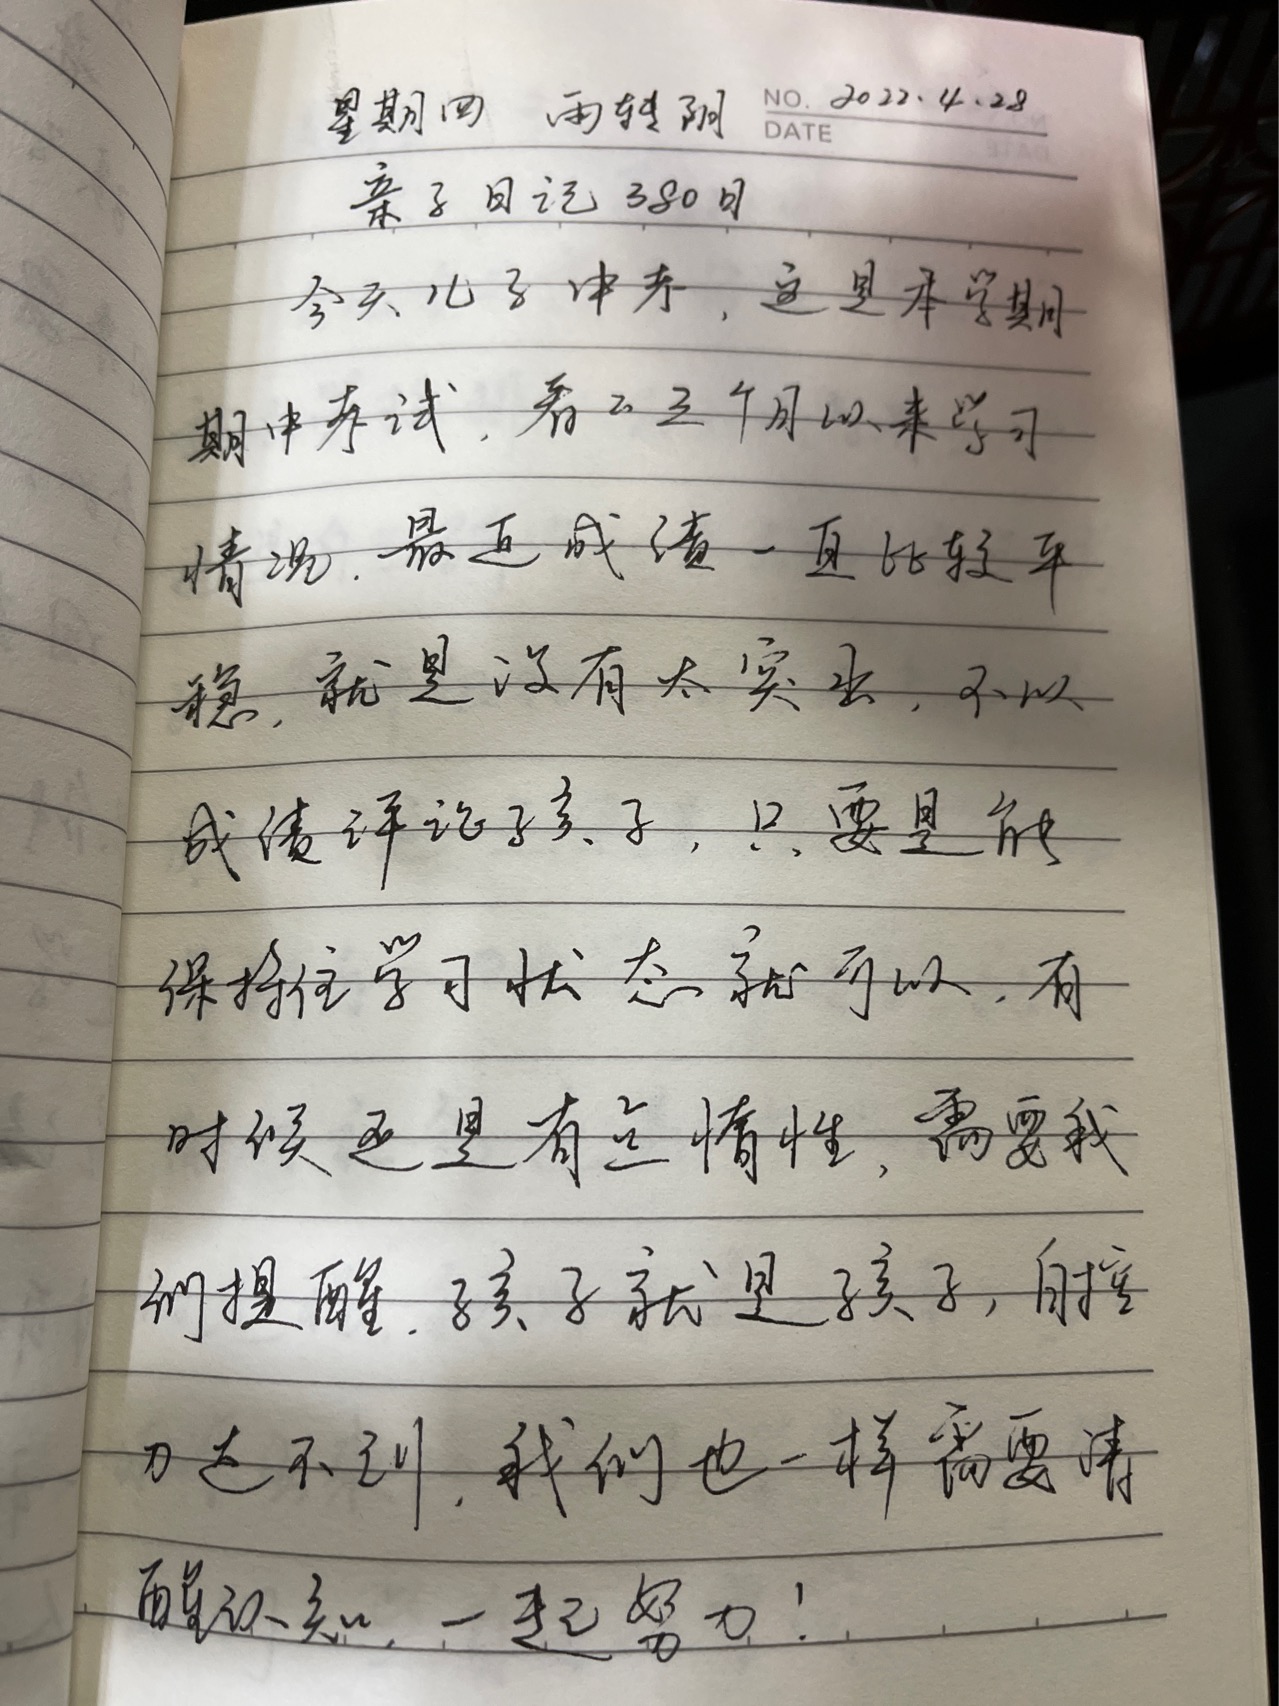 星期四 雨转阴 NO. 2022.4.28
DATE
亲子日记380日
今天儿子中考，这是本学期
期中考试，看了三个月以来学习
情况，最近成绩一直比较平
稳，就是没有太突出，不以
成绩评论孩子，只要是能
保持住学习状态就可以，有
时候还是有点惰性，需要我
们提醒，孩子就是孩子，自控
力达不到，我们也一样需要清
醒认知，一起努力！